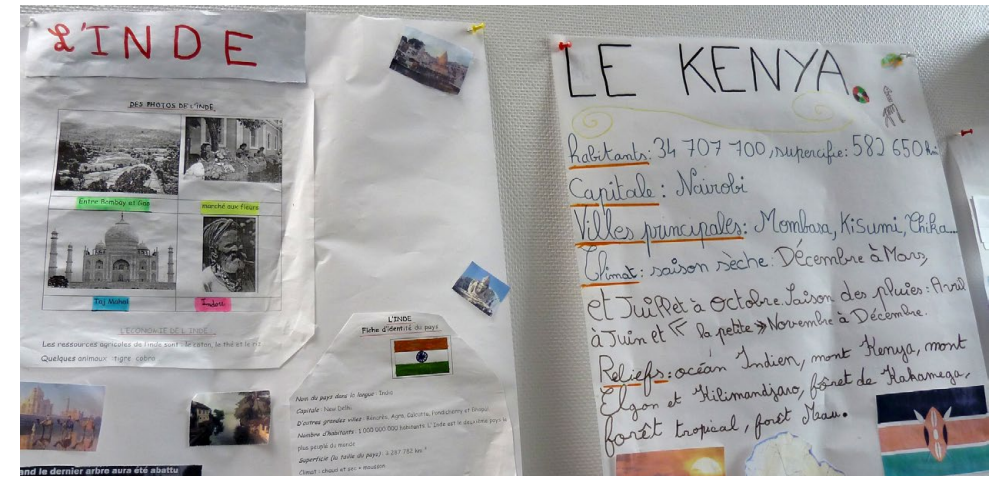 L'INDE
DES PHOTOS DE L'INDE
Entre Bombay et Goa
marché aux fleurs
Taj Mahal
Indou
L'ÉCONOMIE DE L'INDE
Les ressources agricoles de l'inde sont : le coton, le thé et le riz
Quelques animaux : tigre cobra
nd le dernier arbre aura été abattu
L'INDE
Fiche d'identité du pays
Nom du pays dans la langue : Inde
Capitale : New Delhi
D'autres grandes villes : Bénarès, Agra, Calcutta, Pondichéry et
Nombre d'habitants : 1 000 000 000 habitants L'Inde est le deuxième pays le
plus peuplé du monde
Superficie (la taille du pays) : 3 287 782 km²
Climat : chaud et sec + mousson
LE KENYA
habitants: 34 707 700, supercifie: 582 650
Capitale : Nairobi
Villes principales: Mombasa, Kisumi, Thika...
Climat : saison sèche: Décembre à Mars,
et Juillet à octobre. Saison des pluies : Avril
à Juin et « la petite » Novembre à Décembre.
Reliefs : océan Indien, mont Kenya, mont
Elgon et Kilimandjaro, fôret de Kakamega,
forêt tropical, forêt Mau.